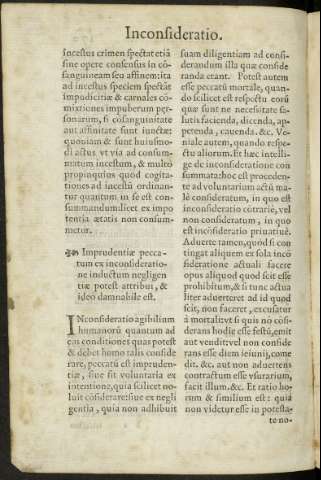 Inconsideratio.
incestus crimen spectat etiã
sine opere consensus in cõ-
sanguineam seu affinem: ita
ad incestus speciem spectãt
impudicitiæ & carnales cõ-
mixtiones impuberum per-
sonarum, si cõsanguinitate
aut affinitate sunt iunctæ:
quoniam & sunt huiusmo-
di actus vt via ad consum-
matum incestum, & multo
propinquius quod cogita-
tiones ad incestũ ordinan-
tur quantum in se est con-
summandum licet ex impo
tentia ætatis non consum-
metur.
Imprudentiæ pecca-
tum ex inconsideratio-
ne inductum negligen
tiæ potest attribui, &
ideo damnabile est.
INconsideratio agibilium
humanorũ quantum ad
eas conditiones quas potest
& debet homo talis conside
rare, peccatũ est impruden-
tiæ, siue sit voluntaria ex
intentione, quia scilicet no-
luit cõsiderare: siue ex negli
gentia, quia non adhibuit
suam diligentiam ad consi-
derandum illa quæ conside
randa erant. Potest autem
esse peccatũ mortale, quan-
do scilicet est respectu eorũ
quæ sunt de necessitate sa-
lutis facienda, dicenda, ap-
petenda, cauenda. &c. Ve-
niale autem, quando respe-
ctu aliorum. Et hæc intelli-
ge de inconsideratione con
summata: hoc est proceden-
te ad voluntarium actũ ma-
lè consideratum, in quo est
inconsideratio cõtrariè, vel
non consideratum, in quo
est incõsideratio priuatiuè.
Aduerte tamen, quòd si con
tingat aliquem ex sola incõ
sideratione actuali facere
opus aliquod quod scit esse
prohibitum, & si tunc actua
liter aduerteret ad id quod
scit, non faceret, excusatur
à mortali: vt si quis nõ cõsi-
derans hodie esse festũ, emit
aut vendit: vel non conside
rans esse diem ieiunij, come
dit. &c. aut non aduertens
contractum esse vsurarium,
facit illum. &c. Et ratio ho-
rum & similium est: quia
non videtur esse in potesta-
te no-